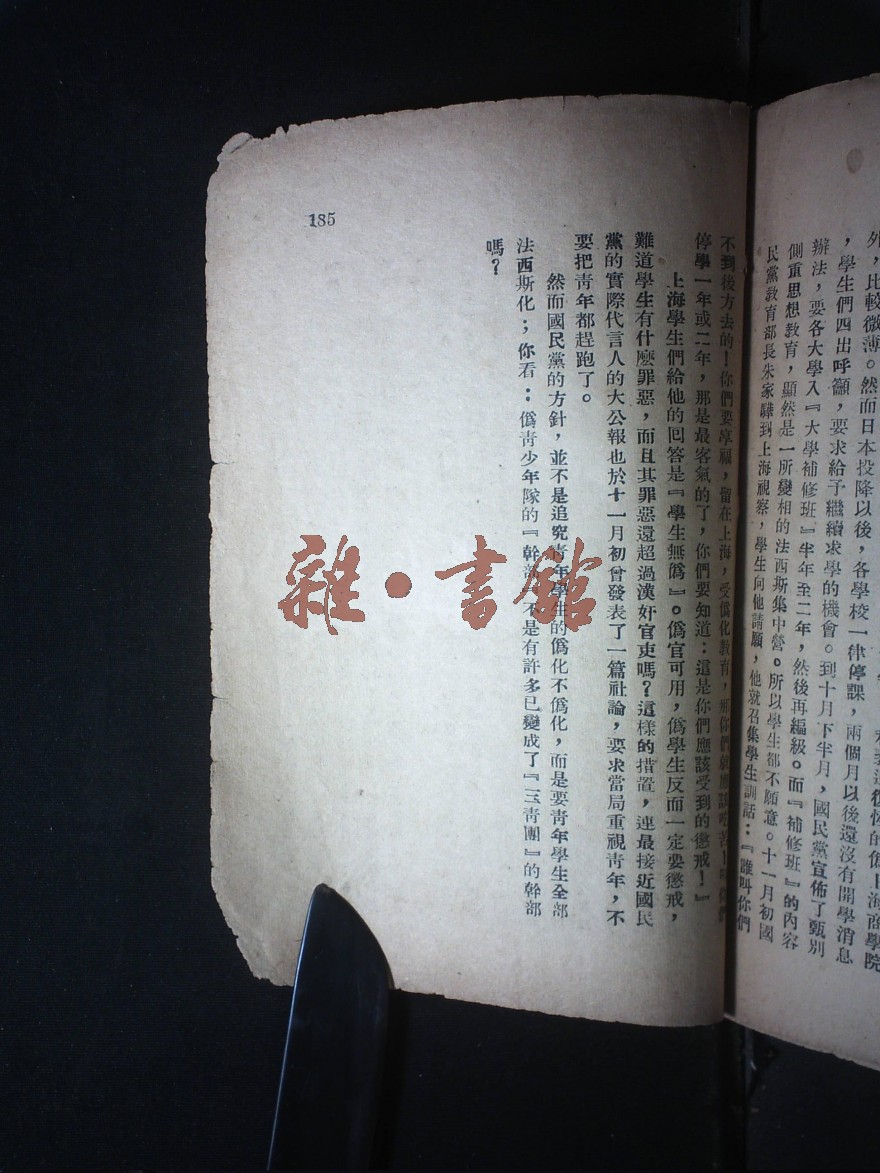 外，比較微薄。然而日本投降以後，各學校一律停課，兩個月以後還沒有開學消息
，學生們四出呼籲，要求給予繼續求學的機會。到十月下半月，國民黨宣佈了甄別
辦法，要各大學入『大學補修班』半年至二年，然後再編級。而『補修班』的內容
側重思想教育，顯然是一所變相的法西斯集中營。所以學生都不願意。十一月初國
民黨教育部長朱家驊到上海視察，學生向他請願，他就召集學生訓話：『誰叫你們
不到後方去的！你們要享福，留在上海，受僞化教育，那你們就應該
停學一年或二年，那是最客氣的了，你們要知道：這是你們應該受到的懲戒！』
上海學生們給他的回答是『學生無僞』。僞官可用，僞學生反而一定要懲戒，
難道學生有什麼罪惡，而且其罪惡還超過漢奸官吏嗎？這樣的措置，連最接近國民
黨的實際代言人的大公報也於十一月初曾發表了一篇社論，要求當局重視青年，不
要把青年都趕跑了。
然而國民黨的方針，並不是追究青年學生的僞化不僞化，而是要青年學生全部
法西斯化；你看：僞青少年隊的『幹部』不是有許多已變成了『三青團』的幹部
嗎？
185
雜·書館